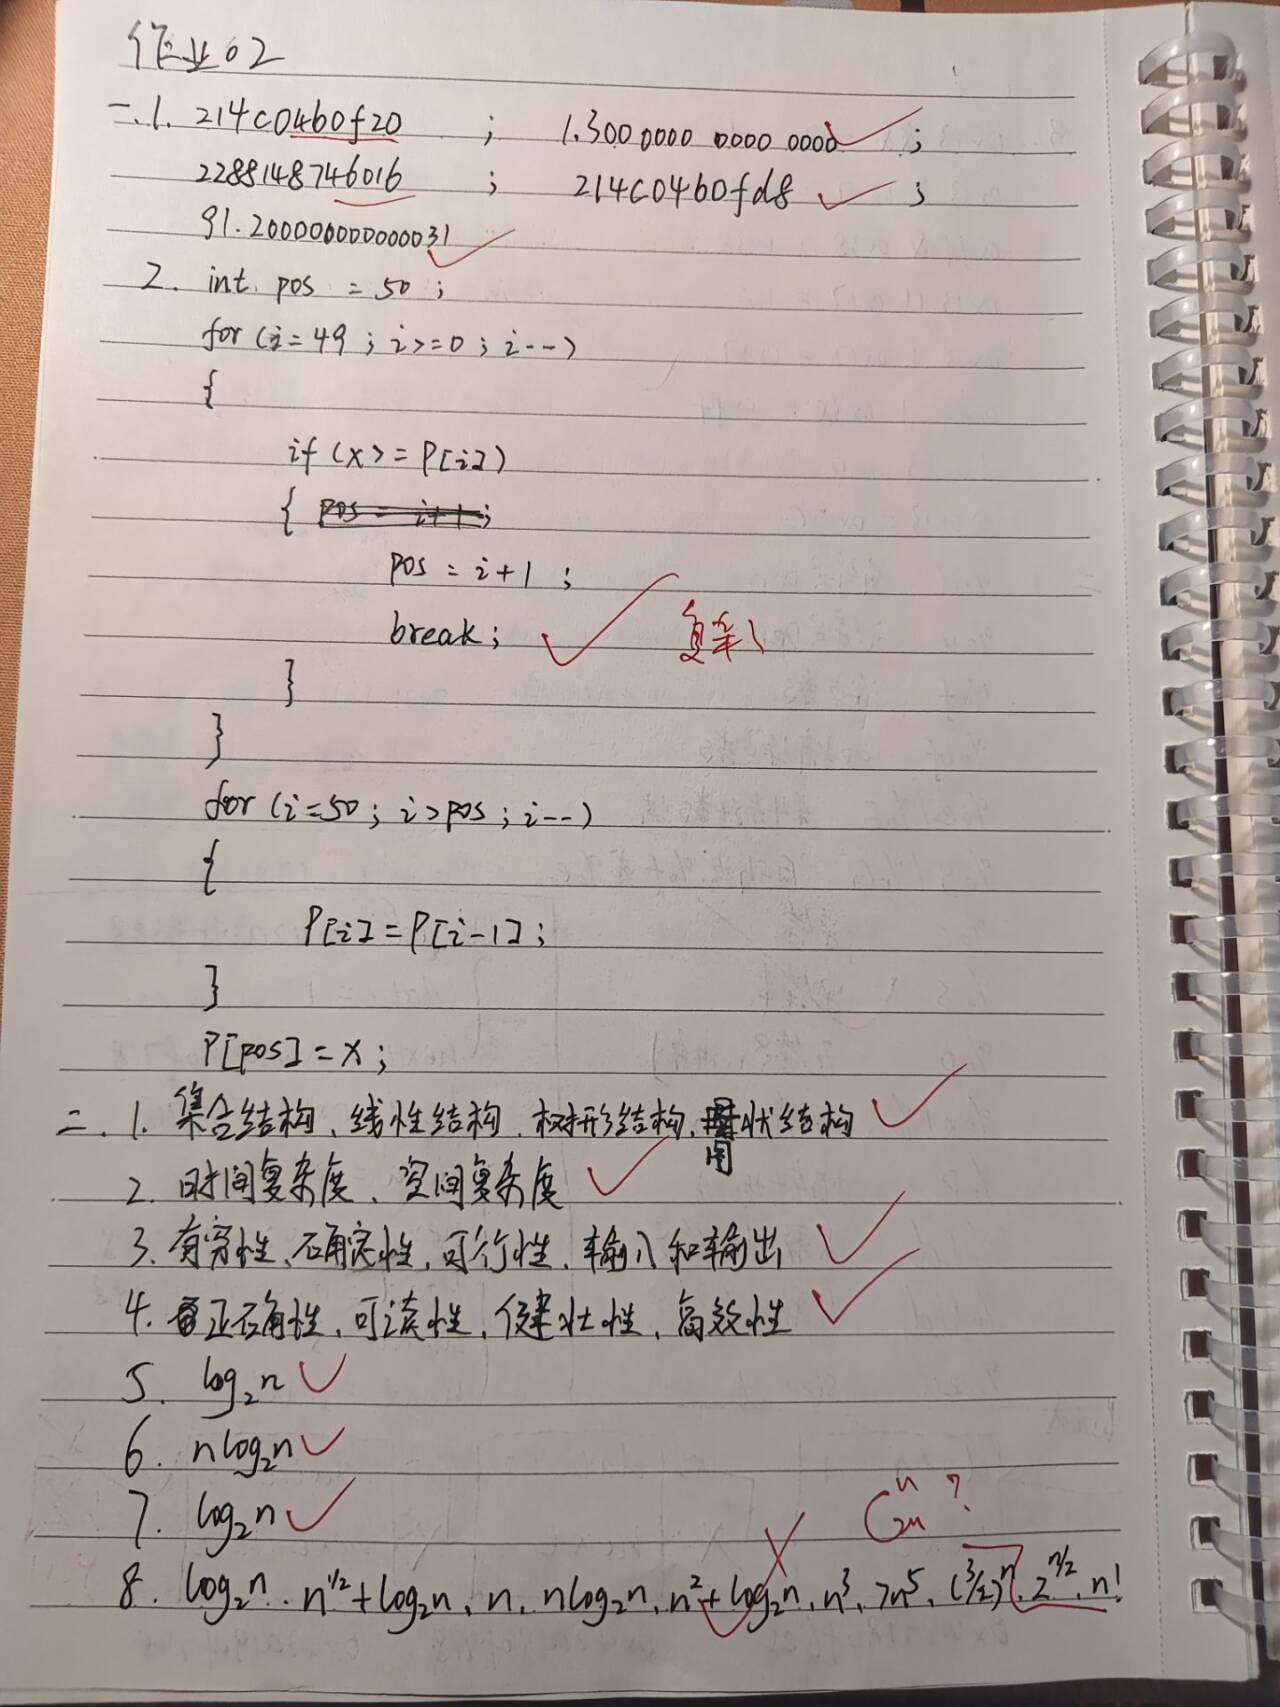 作业02
一.1. 214c04b0f20 ; 1.300 0000 0000 0000 ;
2288148746016 ; 214c04b0fd8 ;
91.2000000000000031
2. int pos = 50 ;
for (i=49 ; i>=0 ; i--)
{
if (x>=P[i])
{ pos = i+1;
pos = i+1 ;
break; 复杂
}
}
for (i=50 ; i>pos ; i--)
{
P[i]=P[i-1];
}
P[pos]=x;
二. 1. 集合结构、线性结构、树形结构、图状结构
2. 时间复杂度、空间复杂度
3. 有穷性、确定性、可行性、输入和输出
4. 正确性、可读性、健壮性、高效性
5. log₂n
6. nlog₂n
7. log₂n
Cⁿ₂ₙ ?
8. log₂n、n^1/2+log₂n、n、nlog₂n、n²+log₂n、n³、7n⁵、(3/2)ⁿ、2^n/2、n!